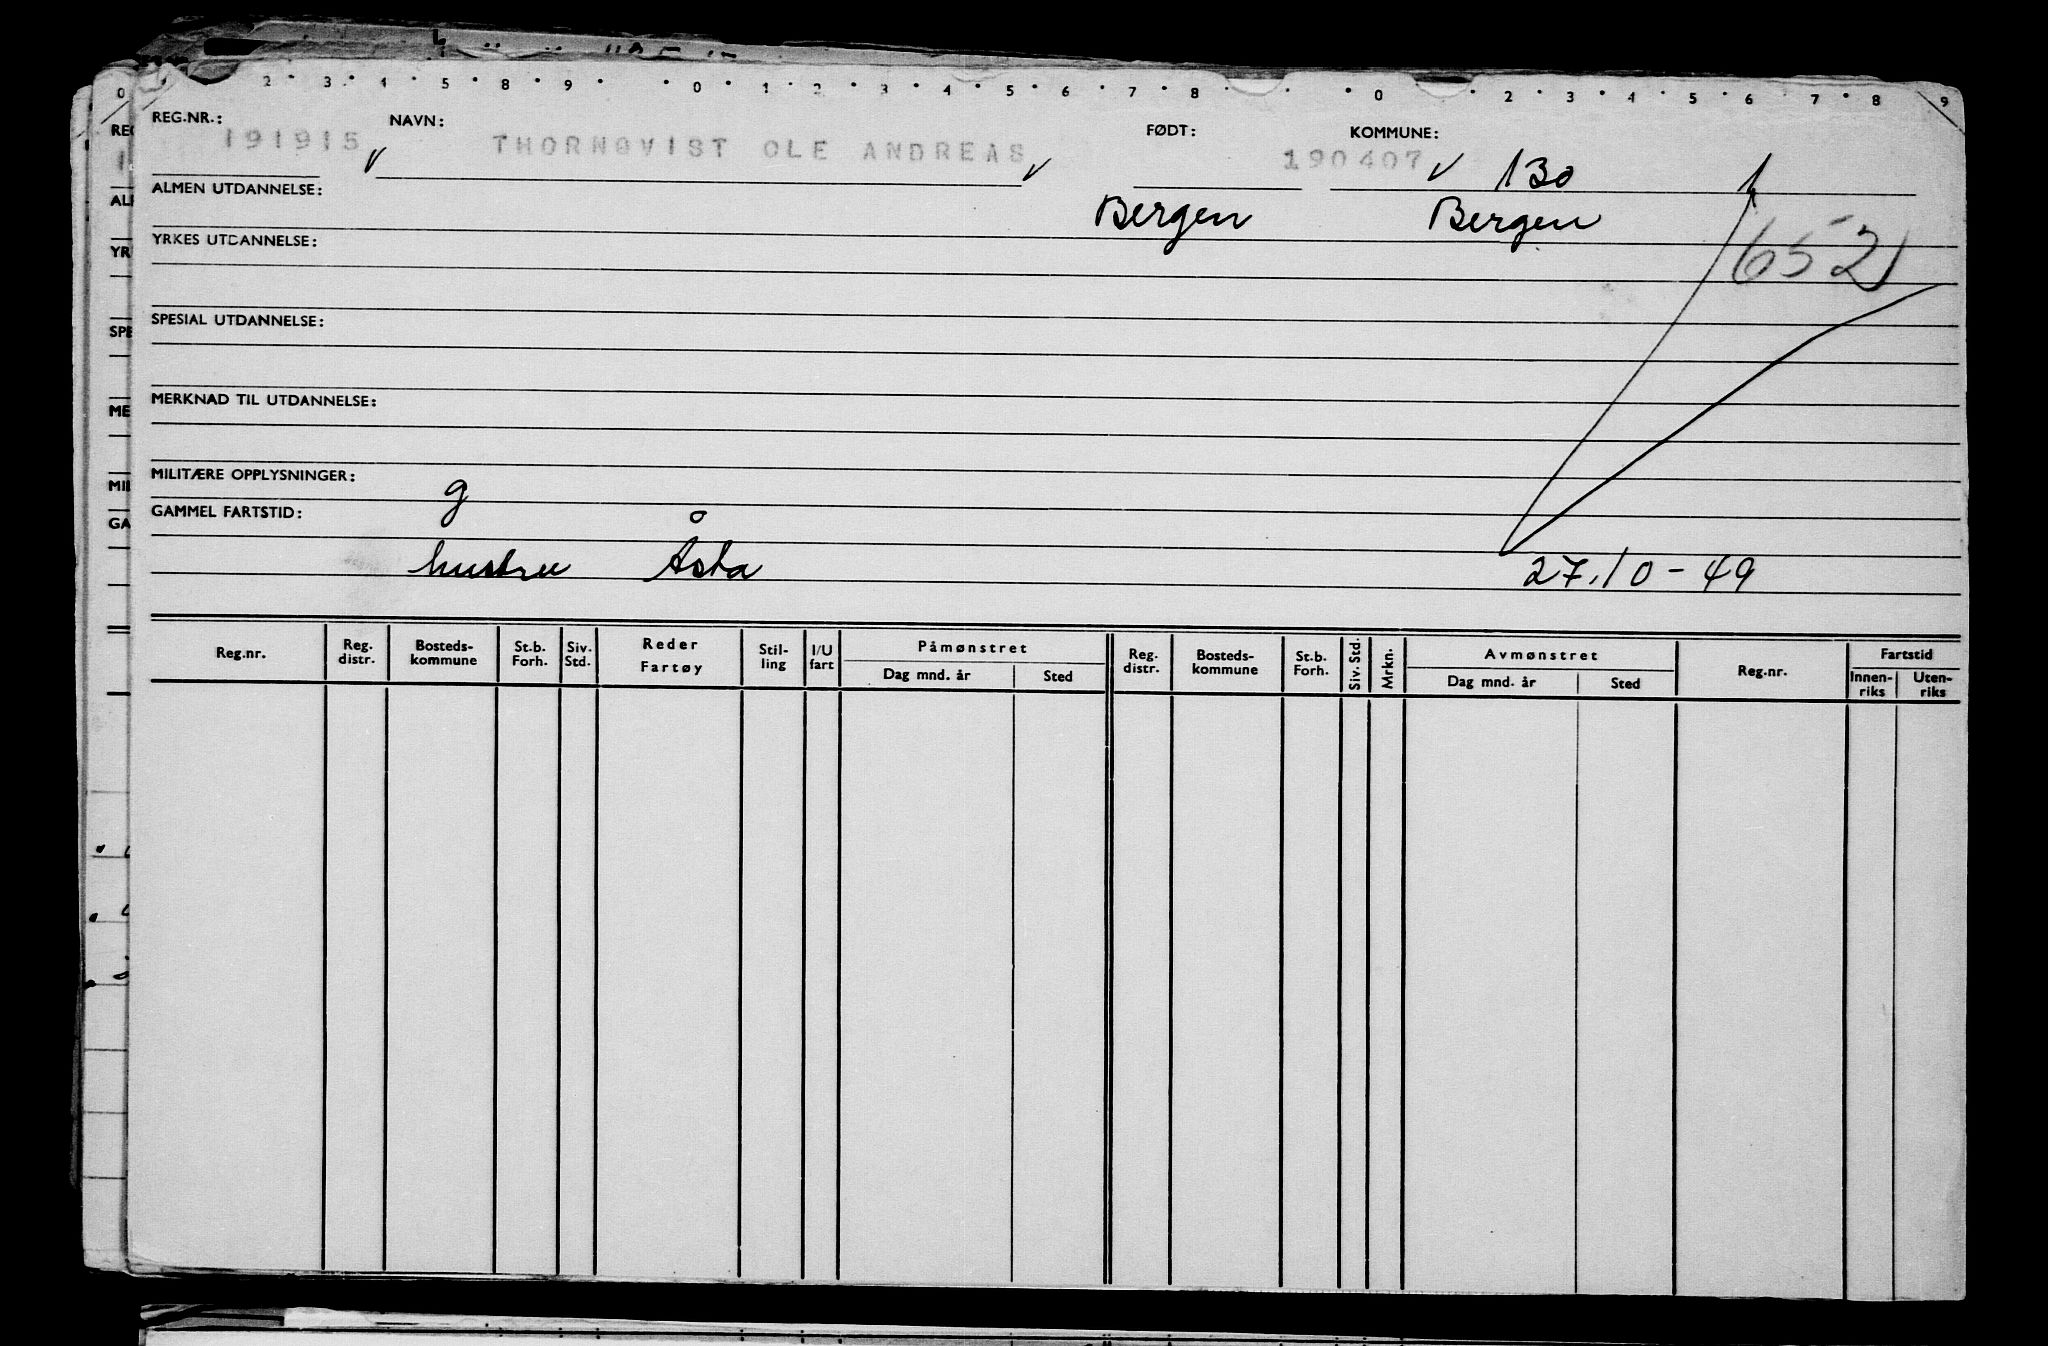 2 3 4 5 8 9 0 1 2 3 4 5 6 7 8 0 2 3 4 5 6 7 8 9
REG.NR.: NAVN: FØDT: KOMMUNE:
191915 THORNQVIST OLE ANDREAS 190407 130
ALMEN UTDANNELSE: Bergen Bergen
YRKES UTDANNELSE: 652
SPESIAL UTDANNELSE:
MERKNAD TIL UTDANNELSE:
MILITÆRE OPPLYSNINGER: g
GAMMEL FARTSTID:
hustru Åsta 27.10-49
Reg.nr. Reg. distr. Bosteds-kommune St.b. Forh. Siv. Std. Reder Fartøy Stil-ling I/U fart Påmønstret Dag mnd. år Sted Reg. distr. Bosteds-kommune St.b. Forh. Siv. Std. Mrkn. Avmønstret Dag mnd. år Sted Reg.nr. Fartstid Innen-riks Uten-riks